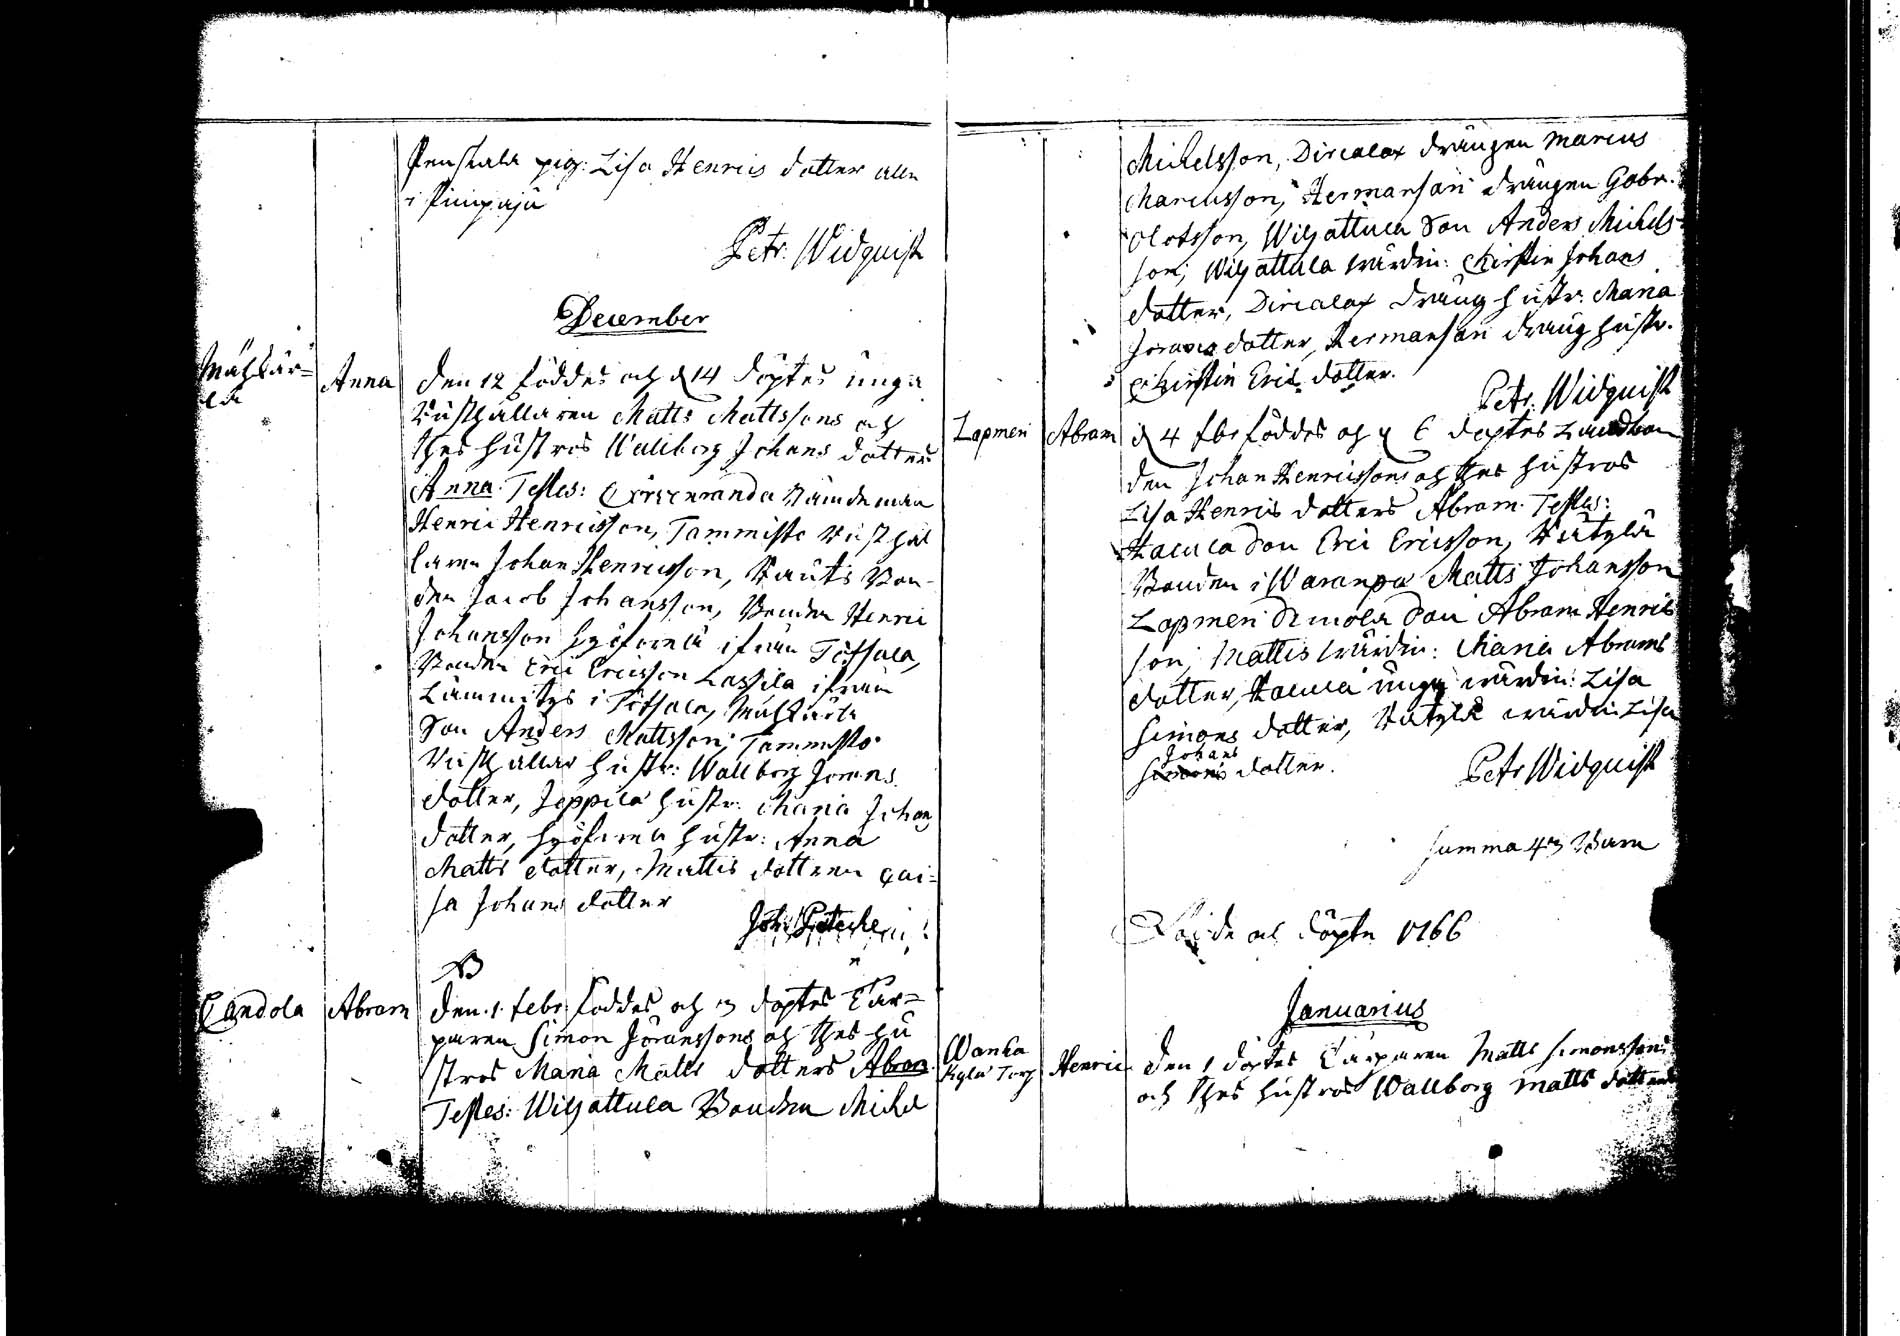 Penskala pig: Lisa Henrics dotter alla
i Pimpaja
Petr: Widquist
December
Mähkär=
lä
Anna
den 12 föddes och d 14 döptes unga
Rusthållaren Matts Mattssons och
thes hustros Wallborg Johans dotters
Anna. Testes: Nämdeman
Henric Henricsson, Tammisto Rusthål
laren Johan Henricsson, Bon
den Jacob Johansson, Bonden Henric
Johansson ifrån Töfsala,
Bonden Eric Ericsson Lassila ifrån
i Töfsala, Mähkärlä
Son Anders Mattsson; Tammisto
Rusthållar hustr: Wallborg Jörans
dotter, Jeppila hustr: Maria Johans
dotter, hustr: Anna
Matts dotter, Mattis dottren Cai=
sa Johans dotter
Joh:
NB
Candola
Abram
den 1 febr: föddes och 3 döptes Tor=
paren Simon Jöranssons och thes hu
stros Maria Matts dotters Abram.
Testes: Wiljattula Bonden Michel
Michelsson, Dircalax drängen Marcus
Marcusson, Hermansari drängen Gabr.
Olofsson, Wiljattula Son Anders Michels-
son; Wiljattula wärdin: Chirstin Johans
dotter, Dircalax dräng hustr: Maria
Jörans dotter, Hermansari dräng hustr.
Chirstin Eric dotter.
Petr. Widquist
Lapmeri
Abram
d 4 föddes och d 6 döptes Landbon
den Johan Henricssons och thes hustros
Lisa Henrics dotters Abram. Testes:
Hacula Son Eric Ericsson,
Bonden i Waranpä Matts Johansson
Lapmeri Son Abram Henrics
son; Mattis wärdin: Maria Abrams
dotter, Hacula unga wärdin: Lisa
Simons dotter, wärdin Lisa
Johans
Simons dotter.
Petr Widquist
Summa 43 Barn
Födde och döpte 1766
Januarius
Wanha
kylä Torp
Henric
den 1 döptes Torparen Matts Simonssons
och thes hustros Wallborg Matts dotters